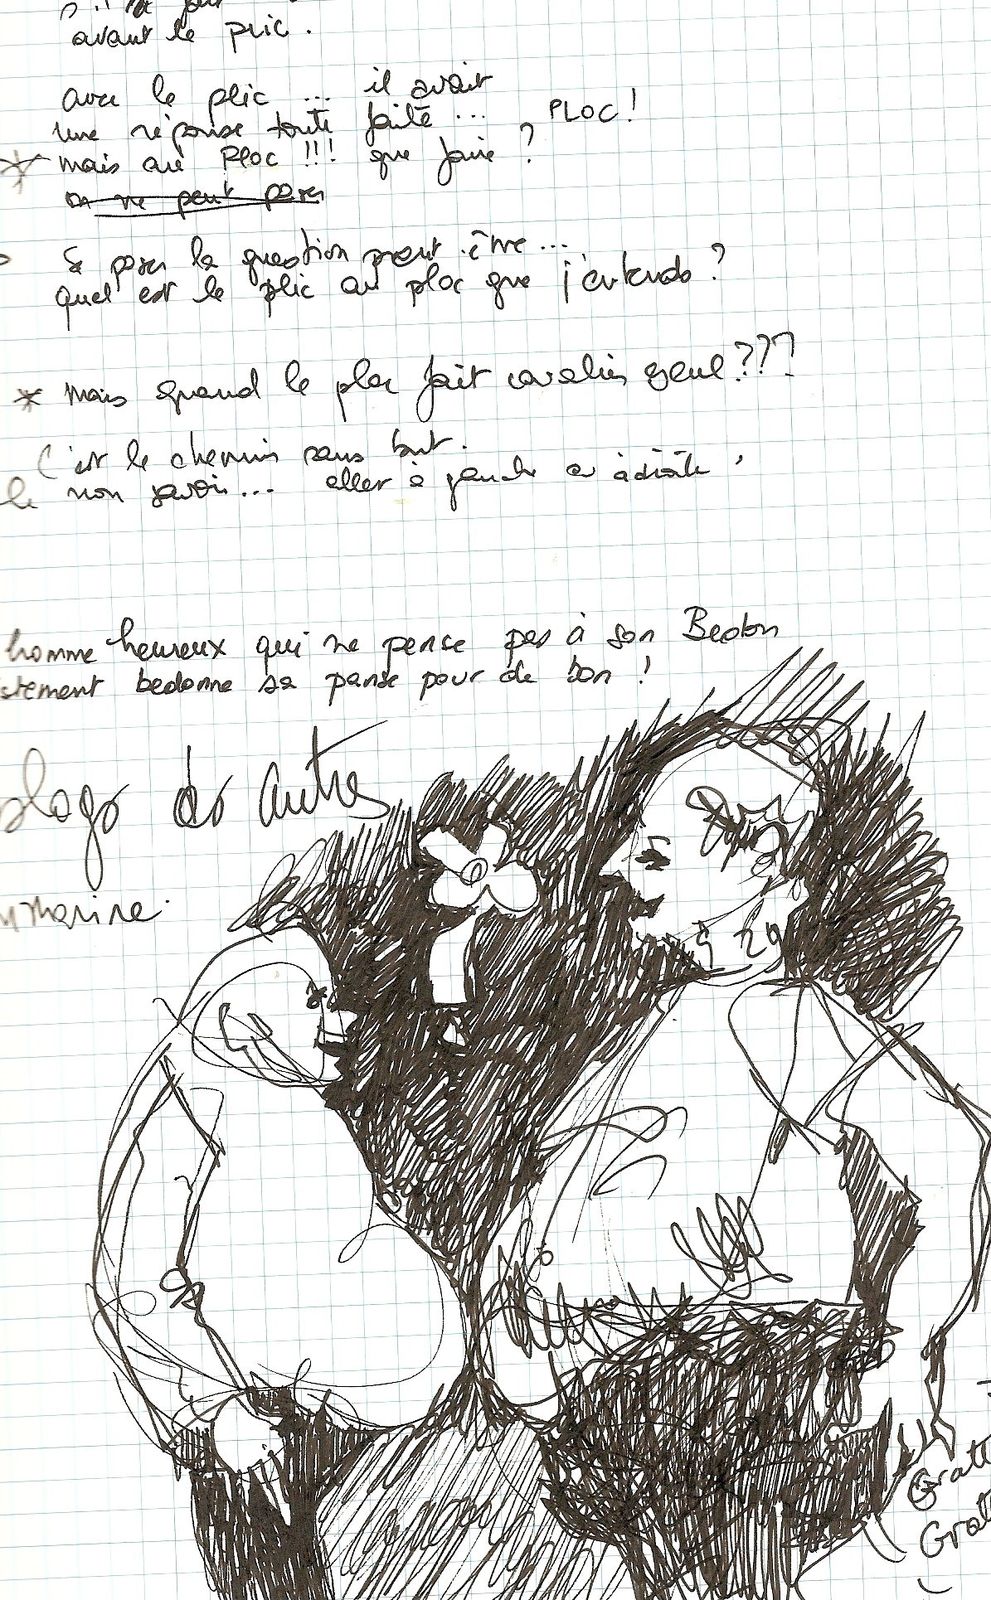 avant le plic.
avec le plic ... il avait
une réponse toute faite ...
PLOC!
* mais au PLOC !!! que faire ?
on ne peut poser
Se poser la question peut être...
quel est le plic au ploc que j'entends ?
* mais quand le ploc fait cavalier seul ???
C'est le chemin sans but.
le non savoir... aller à gauche ou à droite,
homme heureux qui ne pense pas à son Bedon
stement bedonne sa panse pour de bon !
des autres
marine.
Gratt
Gratt